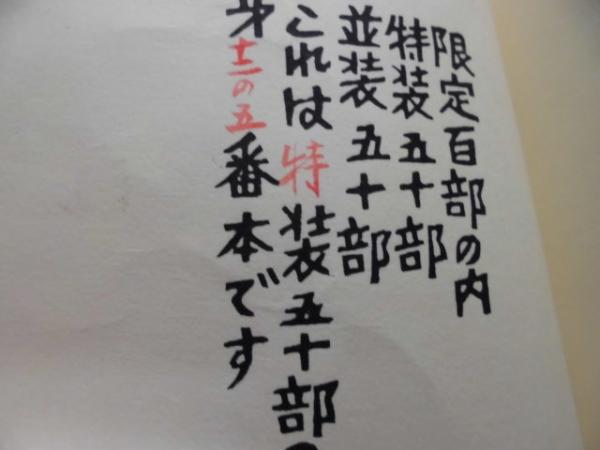 限定百部の内
特装五十部
並装五十部
これは特装五十部
十二の五番本です